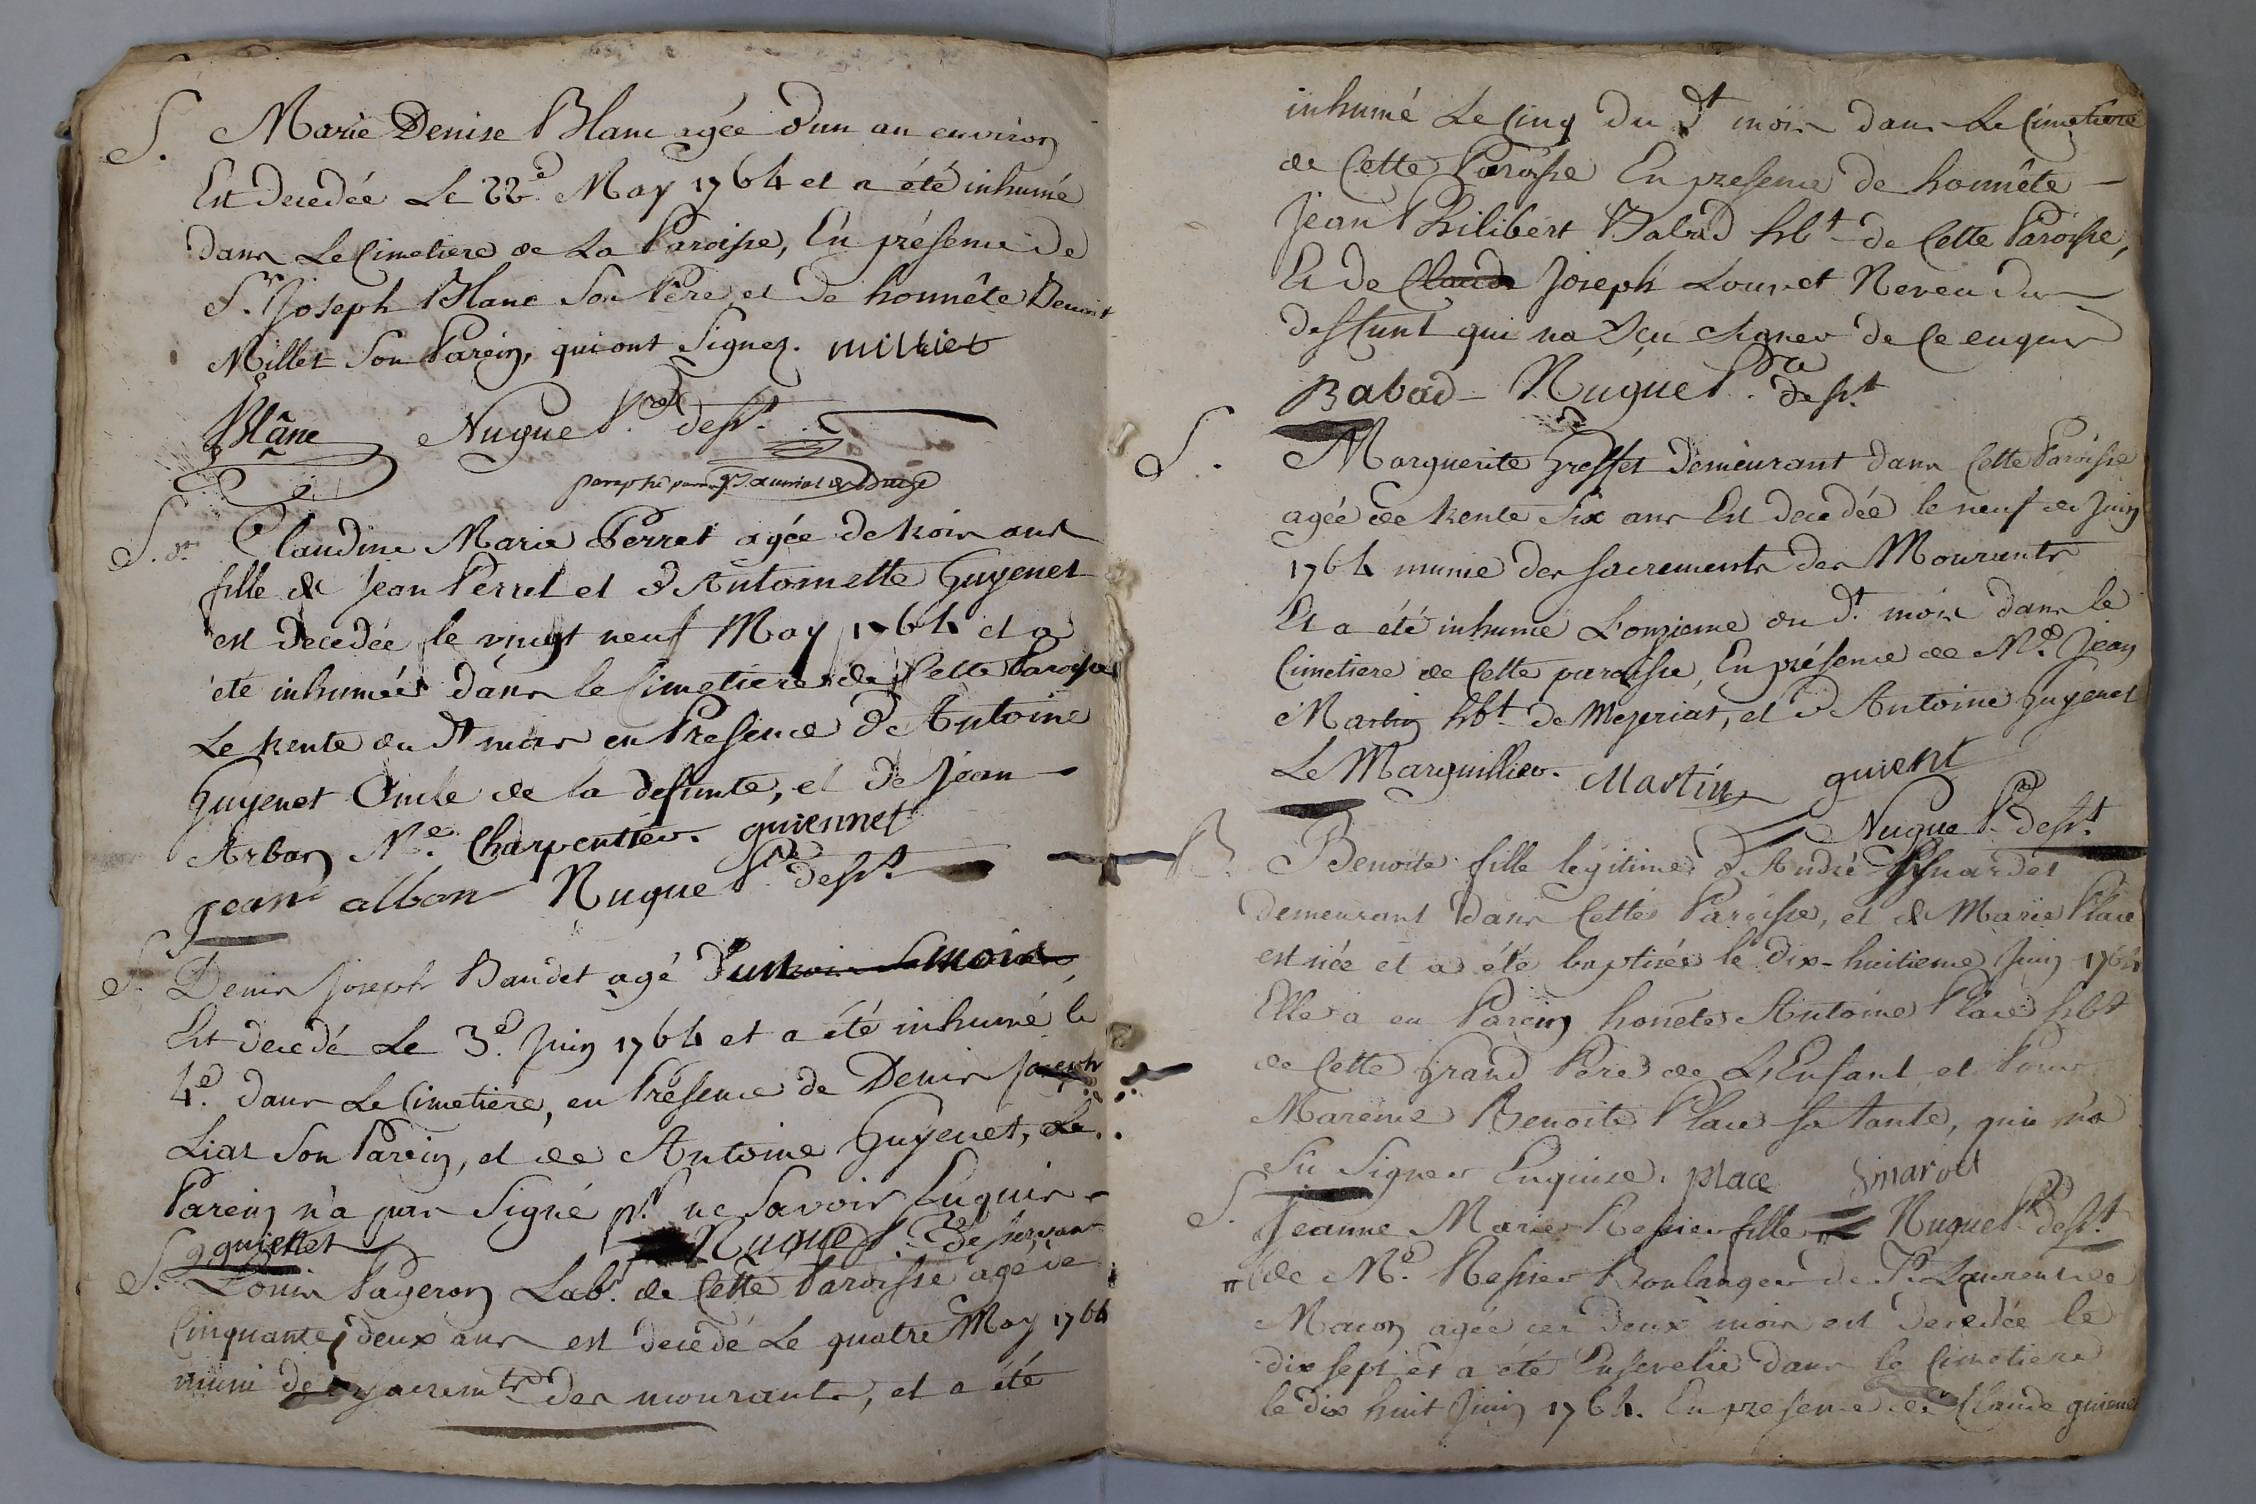 S. Marie Denise Blanc agée d'un an environ
Est decedée Le 22e May 1764 et a été inhumé
dans Le Cimetiere de La Paroisse, En présence de
Sr. Joseph Blanc Son Pere et de honnête Benoit
Millet Son Parein, qui ont Signez. milliet
Blanc Nugue Pre dest.
paraphé par
S. Claudine Marie Perret agée de trois ans
fille de Jean Perret et d'Antoinette Guyenet
est decedée le vingt neuf May 1764 et a
été inhumée dans le Cimetiere de Cette Paroisse
Le trente du dt mois en Presence d'Antoine
Guyenet Oncle de la defunte, et de Jean
Arban Me. Charpentier. guiennet
jean albon Nugue Pre dest.
S. Denis Joseph Baudet agé d'un mois
Est decedé Le 3e. Juin 1764 et a été inhumé le
4e. dans Le Cimetiere, en Présence de Denis Joseph
Liat Son Parein, et de Antoine Guyenet, Le
Parein n'a pas Signé pr. ne Savoir Enquis
guienet Nugue P. desservant
S. Louis Pageron Lab. de Cette Paroisse agé de
Cinquante deux ans est decedé Le quatre May 1764
muni des sacremts des mourants, et a été
inhumé Le Cinq du dt mois dans Le Cimetiere
de Cette Paroisse En presence de honnête
Jean Philibert Babad hbt de Cette Paroisse,
Et de Claude Joseph Louvet Neveu du
deffunt qui na Sçu Signer de Ce enquis
Babad Nugue Pre dest.
S. Marguerite Greffet demeurant dans Cette Paroisse
agée de trente Six ans Est decedée le neuf de Juin
1764 munie des sacrements des Mourants
Et a été inhumé L'onzieme du dt. mois dans le
Cimetiere de Cette paroisse, En présence de Me. Jean
Martin hbt de Mezeriat, et d'Antoine Guyenet
Le Marguillier. Martin guient
Nugue Pre dest.
B. Benoite fille legitime d'André
demeurant dans Cette Paroisse, et de Marie Place
est née et a été baptisée le dix-huitieme Juin 1764
Elle a eu Parein honête Antoine Place hbt
de Cette Grand Pere de L'Enfant et Pour
Mareine Benoite Place sa tante, qui n'a
Su Signer Enquise. place
S. Jeanne Marie Ressier fille Nugue Pre dest.
de Me. Ressier Boulanger de St. Laurent de
Macon agée de deux mois est decedée le
dix sept et a été Ensevelie dans le Cimetiere
le dix huit Juin 1764. En presence de Claude guienet